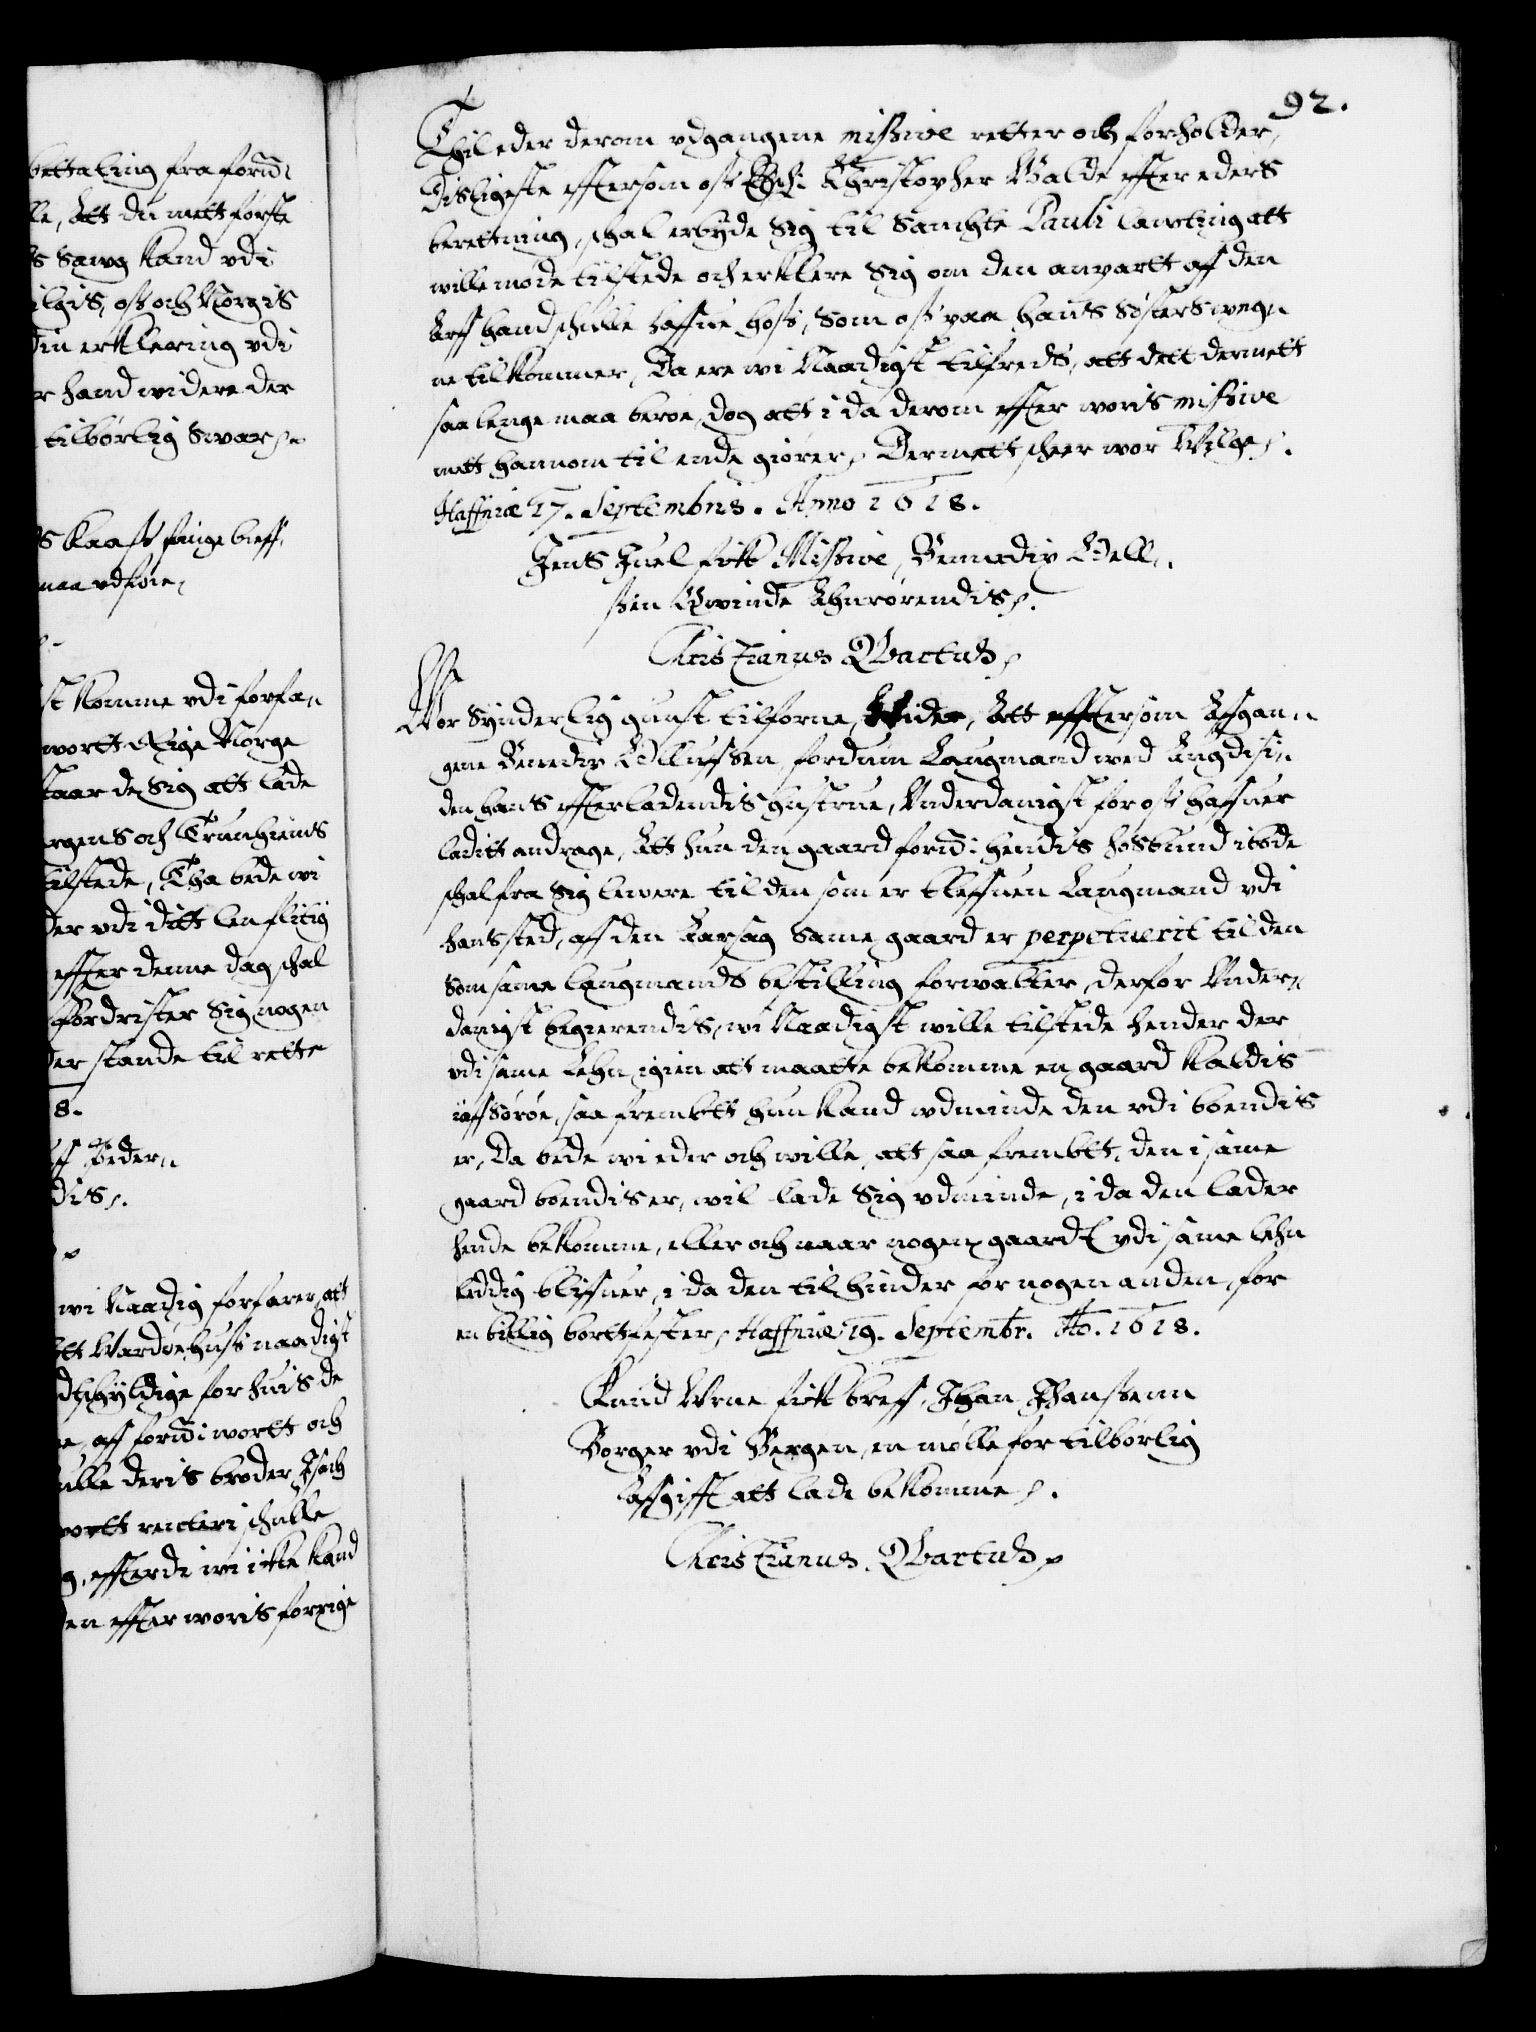 92.
bettaling fra ford:
lle, Att du mett første
ds Sawg Kand vdi
ilgis, oss och Norgis
din erklering vdi
r hand widere der
tilbørlig Swar
s Kaass fange breff,
maa vdføre,
st Komme vdi forfa„
wortt Rige Norge
taar de Sig att lade
rgens och Trunhiems
tilstede, Tha bede wi
der vdi ditt len flitig
effter denne dag schal
fordrister Sig nogen
der stande til rette
8.
ff Peder„
dis.
wi Naadig forfarer, att
tt Wardøehuss naadigst
dschyldige for huis de
e, aff ford: wortt och
ulle deris broder Isach
wortt renteri schulle
g, effterdi wi icke Kand
den effter woris forrige
Thil eder derom vdgangene missive retter och forholder,
Disligeste effterson oss Esch: Christopher Walde effter eders
berettning, schal erbyde Sig til Sanchte Pauli lawting att
wille møde tilstede och erklere Sig om den anpartt aff den
Arff hand schulle haffue hoss, Som oss paa hans Søsters wegn
ne tilkommer, Da ere wi Naadigst tilfreds, att dett dermett
saa lenge maa beroe, dog att i da derom effter woris missive
mett hannom til ende giører, Dermett scheer wor Wilge.
Haffniæ 17. Septembris. Anno 1618.
Jens Juel fick Missive, Bennedix Oell„
ssen Qwinde Ahnrørendis.
Christianus Qvartus
Wor Synderlig gunst tilforne, Wider, Att efftersom Affgan„
gene Benedix Olluffsen, fordum Laugmand wed Angdisi„
den hans effterladendis hustrue, Vnderdanigst for oss haffuer
laditt andrage, Att hun den gaard ford: hendis hosbund ibode
schal fra Sig lewere til den som er bleffuen Laugmand vdi
hans sted, aff den Aarsag Same gaard er perpetuerit til den
Som same laugmands bestilling forwalter, derfor Vnder„
danigst begierendis, wi Naadigst wille tilstede hender der
vdi same Lehn igien att maatte bekomme en gaard Kaldis
iffsørøe, saa frembtt hun Kand vdminde den vdi boendis
er, Da bede wi eder och wille, att saa frembtt, den i same
gaard boendis er, wil lade Sig vdminde, i da den lader
hende bekomme, eller och naar nogen gaard vdi same lehn
leddig bliffuer, i da den til hinder for nogen anden, for
en billig bortfester, Haffniæ 19. Septembr. Ao. 1618.
Knud Vrne fick breff, Jhan Jhanssenn
Borger vdi Bergen, en mølle for tilbørlig
Affgifft att lade bekomme.
Christianus Qvartus